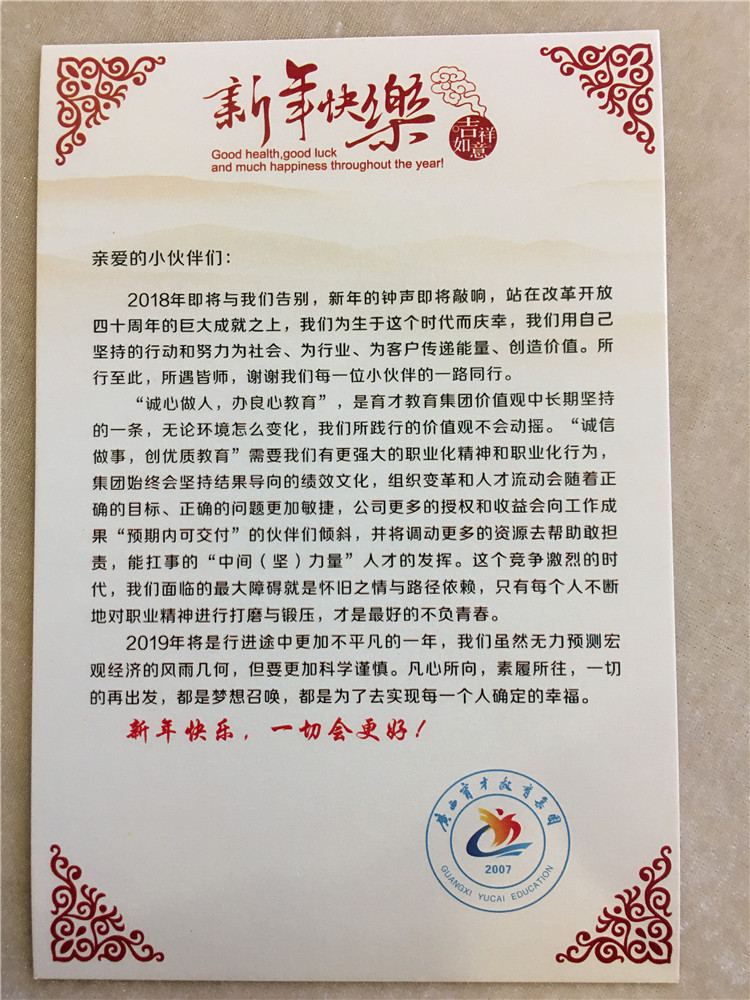 新年快樂
吉祥
如意
Good health,good luck
and much happiness throughout the year!
亲爱的小伙伴们：
2018年即将与我们告别，新年的钟声即将敲响，站在改革开放
四十周年的巨大成就之上，我们为生于这个时代而庆幸，我们用自己
坚持的行动和努力为社会、为行业、为客户传递能量、创造价值。所
行至此，所遇皆师，谢谢我们每一位小伙伴的一路同行。
“诚心做人，办良心教育”，是育才教育集团价值观中长期坚持
的一条，无论环境怎么变化，我们所践行的价值观不会动摇。“诚信
做事，创优质教育”需要我们有更强大的职业化精神和职业化行为，
集团始终会坚持结果导向的绩效文化，组织变革和人才流动会随着正
确的目标、正确的问题更加敏捷，公司更多的授权和收益会向工作成
果“预期内可交付”的伙伴们倾斜，并将调动更多的资源去帮助敢担
责，能扛事的“中间（坚）力量”人才的发挥。这个竞争激烈的时
代，我们面临的最大障碍就是怀旧之情与路径依赖，只有每个人不断
地对职业精神进行打磨与锻压，才是最好的不负青春。
2019年将是行进途中更加不平凡的一年，我们虽然无力预测宏
观经济的风雨几何，但要更加科学谨慎。凡心所向，素履所往，一切
的再出发，都是梦想召唤，都是为了去实现每一个人确定的幸福。
新年快乐，一切会更好！
广西育才教育集团
2007
GUANGXI YUCAI EDUCATION